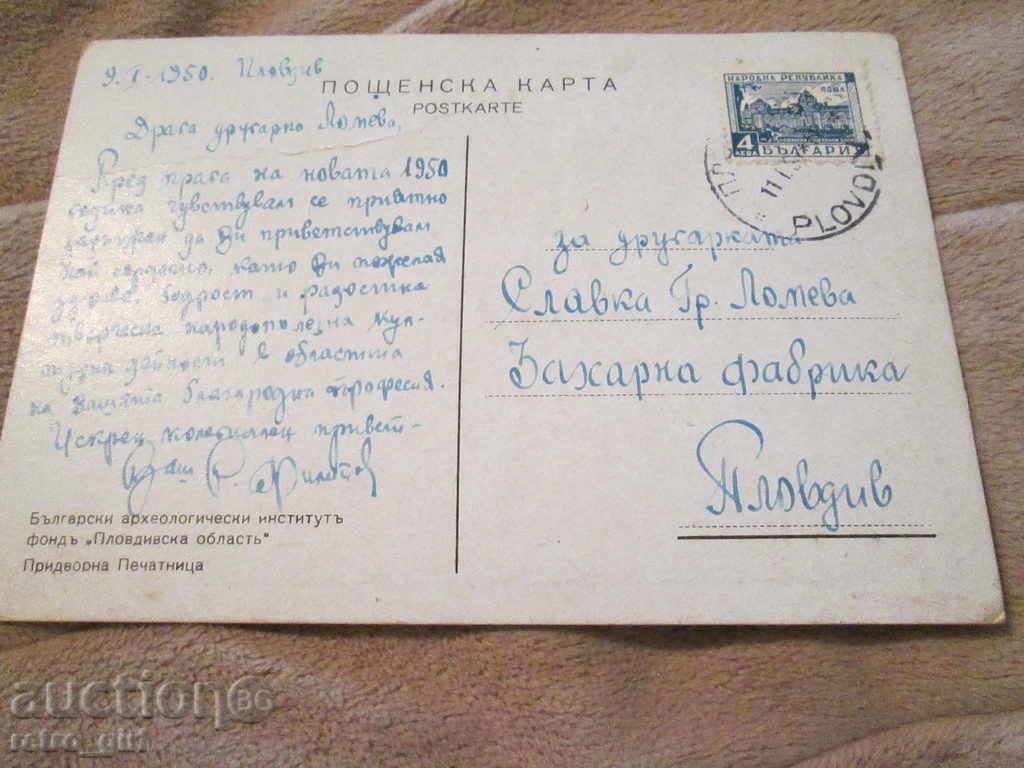 9. I - 1950. Пловдив
ПОЩЕНСКА КАРТА
POSTKARTE
Драга другарко Ломева,
Пред прага на новата 1950
година чувствувам се приятно
задължен да Ви приветствувам
най сърдечно, като Ви пожелая
здраве, бодрост и радостна
творческа народополезна кул-
турна дейност в областта
на нашата благородна професия.
Искрен колегиален привет -
Ваш
Български археологически институтъ
фондъ „Пловдивска область"
Придворна Печатница
НАРОДНА РЕПУБЛИКА
4 ЛЕВА БЪЛГАРИЯ
11 I
PLOVDIV
за другарката
Славка Гр. Ломева
Захарна фабрика
Пловдив
auction86
retro_gift